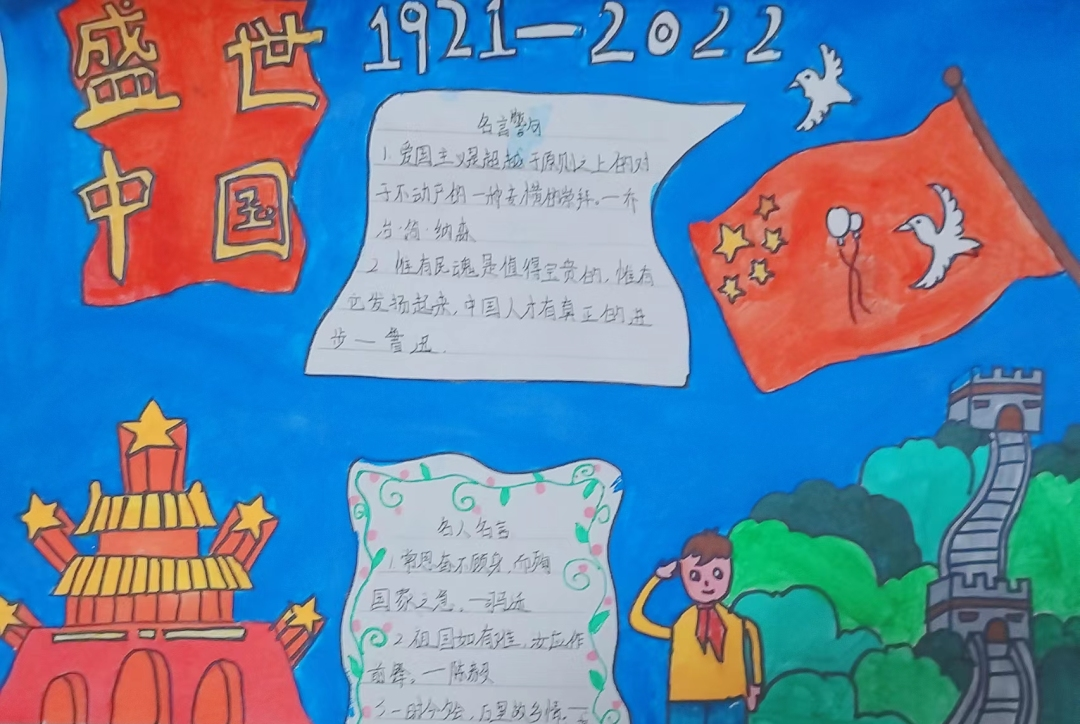 盛世
中国
1921—2022
名言警句
1.爱国主义是超越于原则之上的对
于不动产的一种专横的崇拜。—乔
治·简·纳森
2 惟有民魂是值得宝贵的,惟有
它发扬起来,中国人才有真正的进
步—鲁迅.
名人名言
1.常思奋不顾身,而殉
国家之急。—司马迁
2.祖国如有难,汝应作
前锋。—陈毅